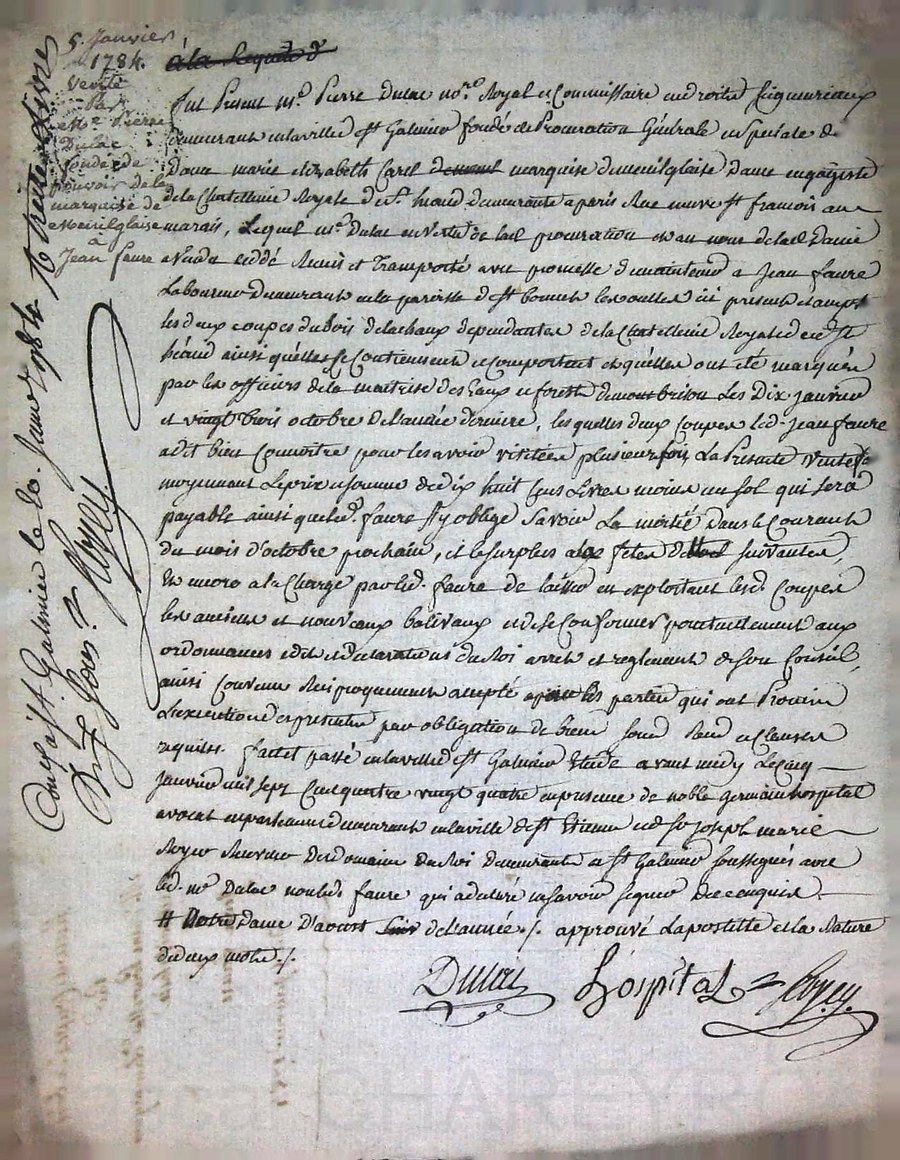 5. Janvier
1784.
Vente
Par
Me. Pierre
Dulac
fondé de
pouvoir de la
marquise de
Meinilglaise
à
Jean faure
a la Requete d
fut Present me. Pierre Dulac nore. Royal et Commissaire en droits seigneuriaux
demeurant en la ville de st Galmier fondé de Procuration Générale et speciale de
Dame marie elizabeth Carel marquise de menilglaise Dame engagiste
de la Chatellenie Royale de st. heand demeurante a paris Rue neuve st francois au
marais, Lequel me. Dulac en vertu de lad procuration et au nom de lad Dame
a vendu ceddé Remis et Transporté avec promesse de maintenir a Jean faure
Laboureur demeurant en la paroisse de st bonnet les oulles ici present et
les deux coupes du bois de la chaux dependantes de la Chatellenie Royale de st
héand ainsi quelles se Contiennent et comportent et quelles ont été marquées
par les officiers de la maitrise des Eaux et forets de montbrison Les Dix janvier
et vingt trois octobre de l'année derniere, les quelles deux Coupes led. Jean faure
a dit bien Connoitre pour les avoir visitées plusieurs fois La Presente vente
moyennant Le prix et somme de dix huit Cens Livres moins un sol qui sera
payable ainsi que led. faure s'y oblige Savoir La moitié dans le Courant
du mois d'octobre prochain, et le surplus aux fetes de suivantes,
En outre a la Charge par led. faure de laisser en exploitant lesd. Coupes
les anciens et nouveaux balivaux et de se Conformer ponctuellement aux
ordonnances edits et declarations du Roi arrets et reglements de son Conseil,
ainsi Convenu Reciproquement accepté les parties qui ont Promis
L'execution des presentes par obligation de biens soum Renon et Clauses
requises. fait et passé en la ville de st Galmier Etude avant midy Le cinq
Janvier mil sept Cens quatre vingt quatre en presence de noble germain hospital
avocat en parlement demeurant en la ville de st Etienne et de sr joseph marie
Royer Receveur des domaines du Roi demeurants a st Galmier soussignés avec
led. me Dulac non led. faure qui a declaré ne savoir signer De ce enquis
# Notre Dame D'aoust de l'année ./. approuvé La postille et la Nature
de deux mots ./.
Dulac hospital Royer
Conlé a st. Galmier le 20. Janvr 1784 R trente livres
Dix sous. Royer